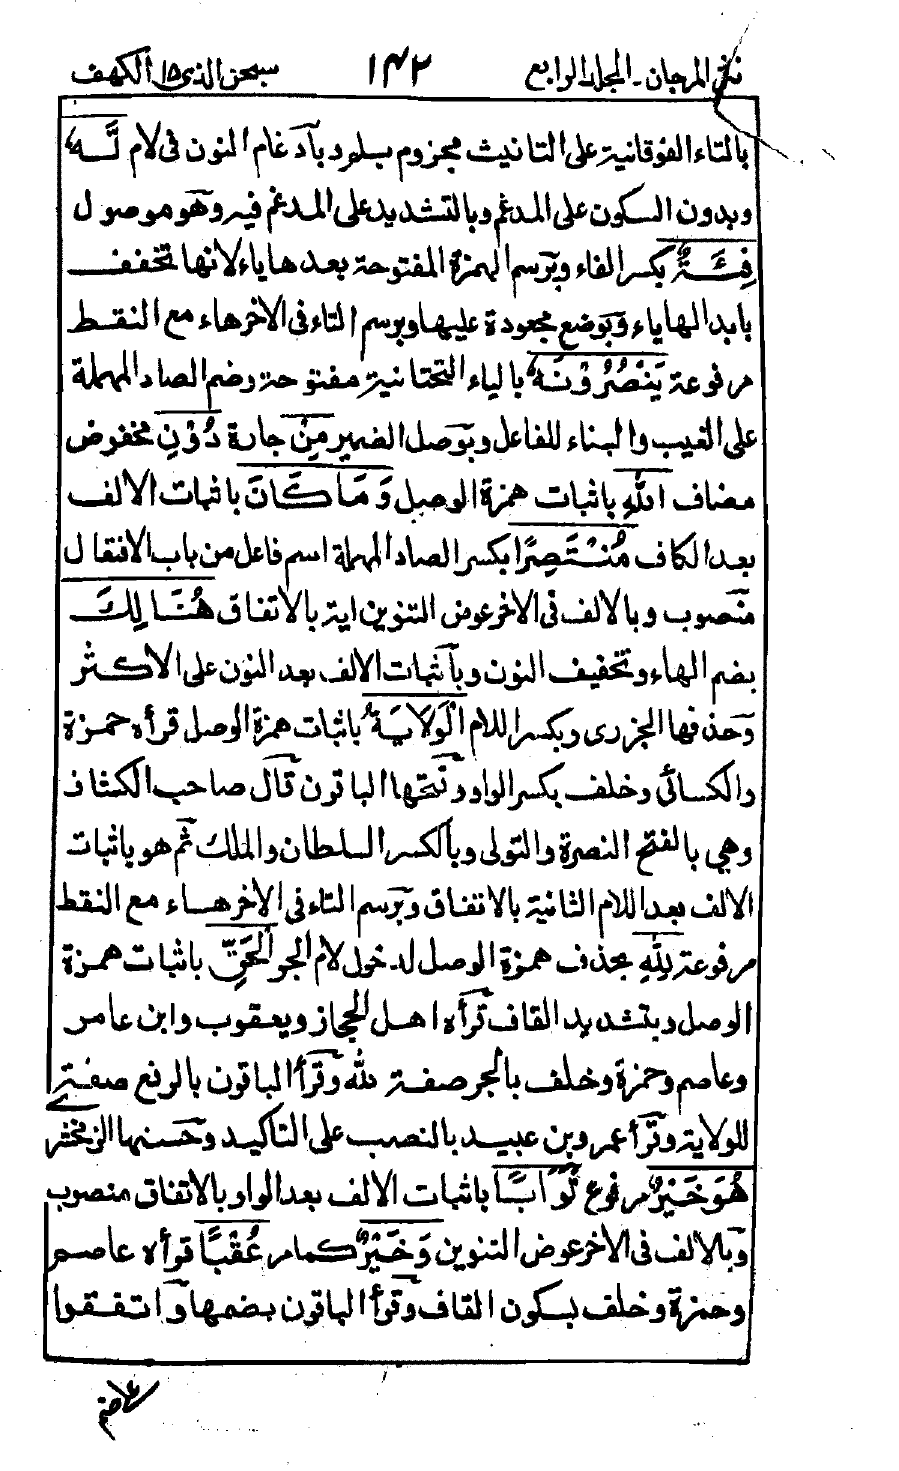 نثر المرجان ـ المجلد الرابع ١٤٢ سبحن الذى ١٥ الكهف
بالتاء الفوقانية على التانيث مجزوم بلم وبادغام النون فى لام لَّهٗ
وبدون السكون على المدغم وبالتشديد على المدغم فيه وهو موصول
فِئَةٌ بكسر الفاء وبرسم الهمزة المفتوحة بعدها ياء لانها تخفف
بابدالها ياء وبوضع مجعودة عليها وبرسم التاء فى الاخر هاء مع النقط
مرفوعة يَنْصُرُوْنَهٗ بالياء التحتانية مفتوحة وضم الصاد المهملة
على الغيب والبناء للفاعل وبوصل الضمير مِنْ جارة دُوْنِ مخفوض
مضاف اللّٰهِ باثبات همزة الوصل وَمَا كَانَ باثبات الالف
بعد الكاف مُنْتَصِرًا بكسر الصاد المهملة اسم فاعل من باب الافتعال
منصوب وبالالف فى الاخر عوض التنوين اية بالاتفاق هُنَالِكَ
بضم الهاء وتخفيف النون وباثبات الالف بعد النون على الاكثر
وحذفها الجزرى وبكسر اللام الْوَلَايَةُ باثبات همزة الوصل قرأه حمزة
والكسائى وخلف بكسر الواو وفتحها الباقون قال صاحب الكشاف
وهي بالفتح النصرة والتولى وبالكسر السلطان والملك ثم هو باثبات
الالف بعد اللام الثانية بالاتفاق وبرسم التاء فى الاخر هاء مع النقط
مرفوعة لِلّٰهِ بحذف همزة الوصل لدخول لام الجر الْحَقِّ باثبات همزة
الوصل وبتشديد القاف قرأه اهل الحجاز ويعقوب وابن عامر
وعاصم وحمزة وخلف بالجر صفة لله وقرأ الباقون بالرفع صفة
للولاية وقرأ عمرو بن عبيد بالنصب على التاكيد وحسنها الزمخشرى
هُوَ خَيْرٌ مرفوع ثَوَابًا باثبات الالف بعد الواو بالاتفاق منصوب
وبالالف فى الاخر عوض التنوين وَخَيْرٌ كما مر عُقْبًا قرأه عاصم
وحمزة وخلف بسكون القاف وقرأ الباقون بضمها واتفقوا